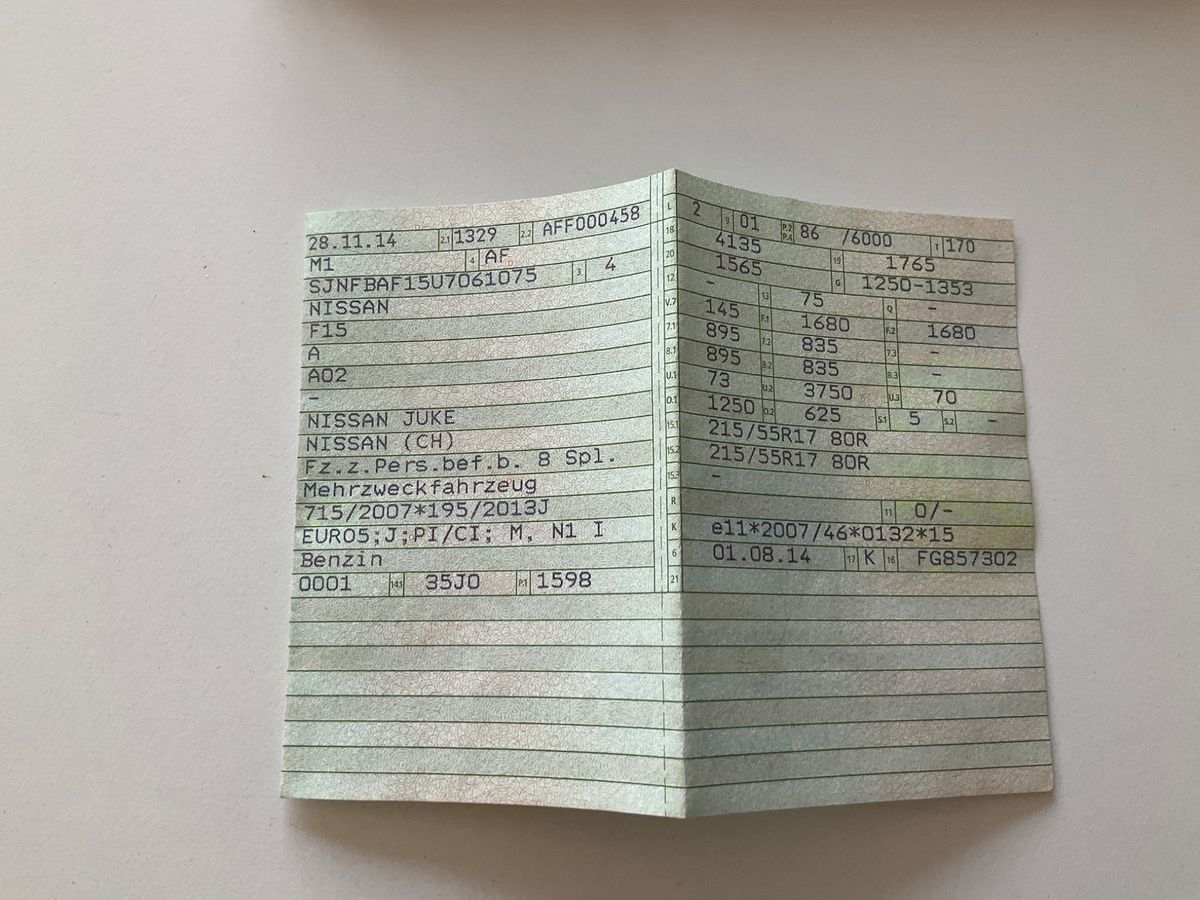 28.11.14 2.1 1329 2.2 AFF000458
M1 4 AF
SJNFBAF15U7061075 3 4
NISSAN
F15
A
A02
-
NISSAN JUKE
NISSAN (CH)
Fz.z.Pers.bef.b. 8 Spl.
Mehrzweckfahrzeug
715/2007*195/2013J
EURO5;J;PI/CI; M, N1 I
Benzin
0001 14.1 35J0 P.1 1598
L 2 9 01 P.2 P.4 86 /6000 T 170
18 4135 19 1765
20 1565 G 1250-1353
12 - 13 75 Q -
V.7 145 F.1 1680 F.2 1680
7.1 895 7.2 835 7.3 -
8.1 895 8.2 835 8.3 -
U.1 73 U.2 3750 U.3 70
O.1 1250 O.2 625 S.1 5 S.2 -
15.1 215/55R17 80R
15.2 215/55R17 80R
15.3 -
R 11 0/-
K e11*2007/46*0132*15
6 01.08.14 17 K 16 FG857302
21